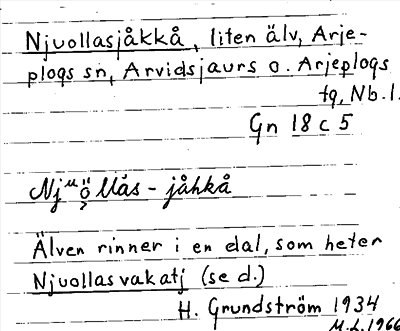 Njuollasjåkkå, liten älv, Arje-
plogs sn, Arvidsjaurs o. Arjeplogs
tg, Nb.l.
Gn 18 c 5
Njᵘö̜llås - jåhkå
Älven rinner i en dal, som heter
Njuollasvakatj (se d.)
H. Grundström 1934
M.L. 1966